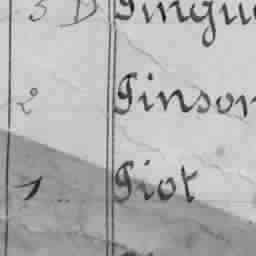 3 D Pingu
2 Pinson
1 Piot